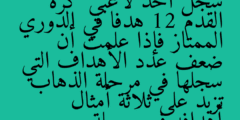 سجل أحد لاعبي كرة
القدم 12 هدفا في الدوري
الممتاز فإذا علمت أن
ضعف عدد الأهداف التي
سجلها في مرحلة الذهاب
تزيد على ثلاثة أمثال